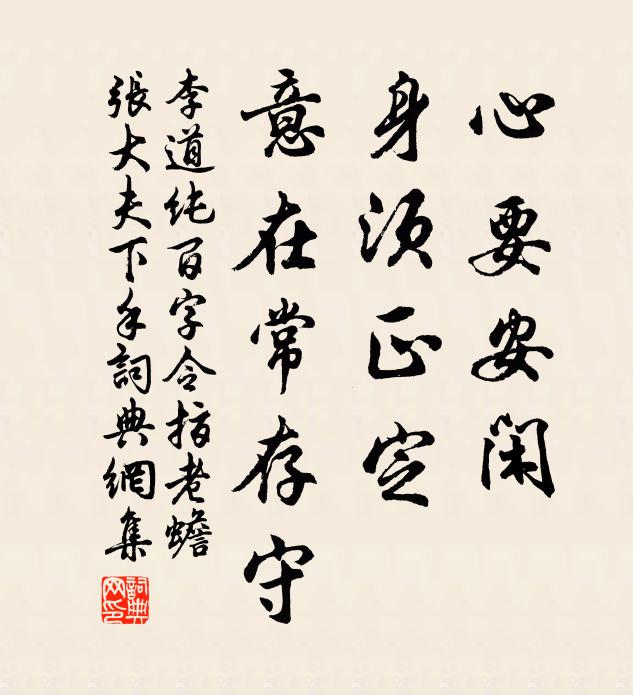 心要安閑
身須正定
意在常存守
李道純百字令指老蟾
張大夫下手詞典網集
詞典網印